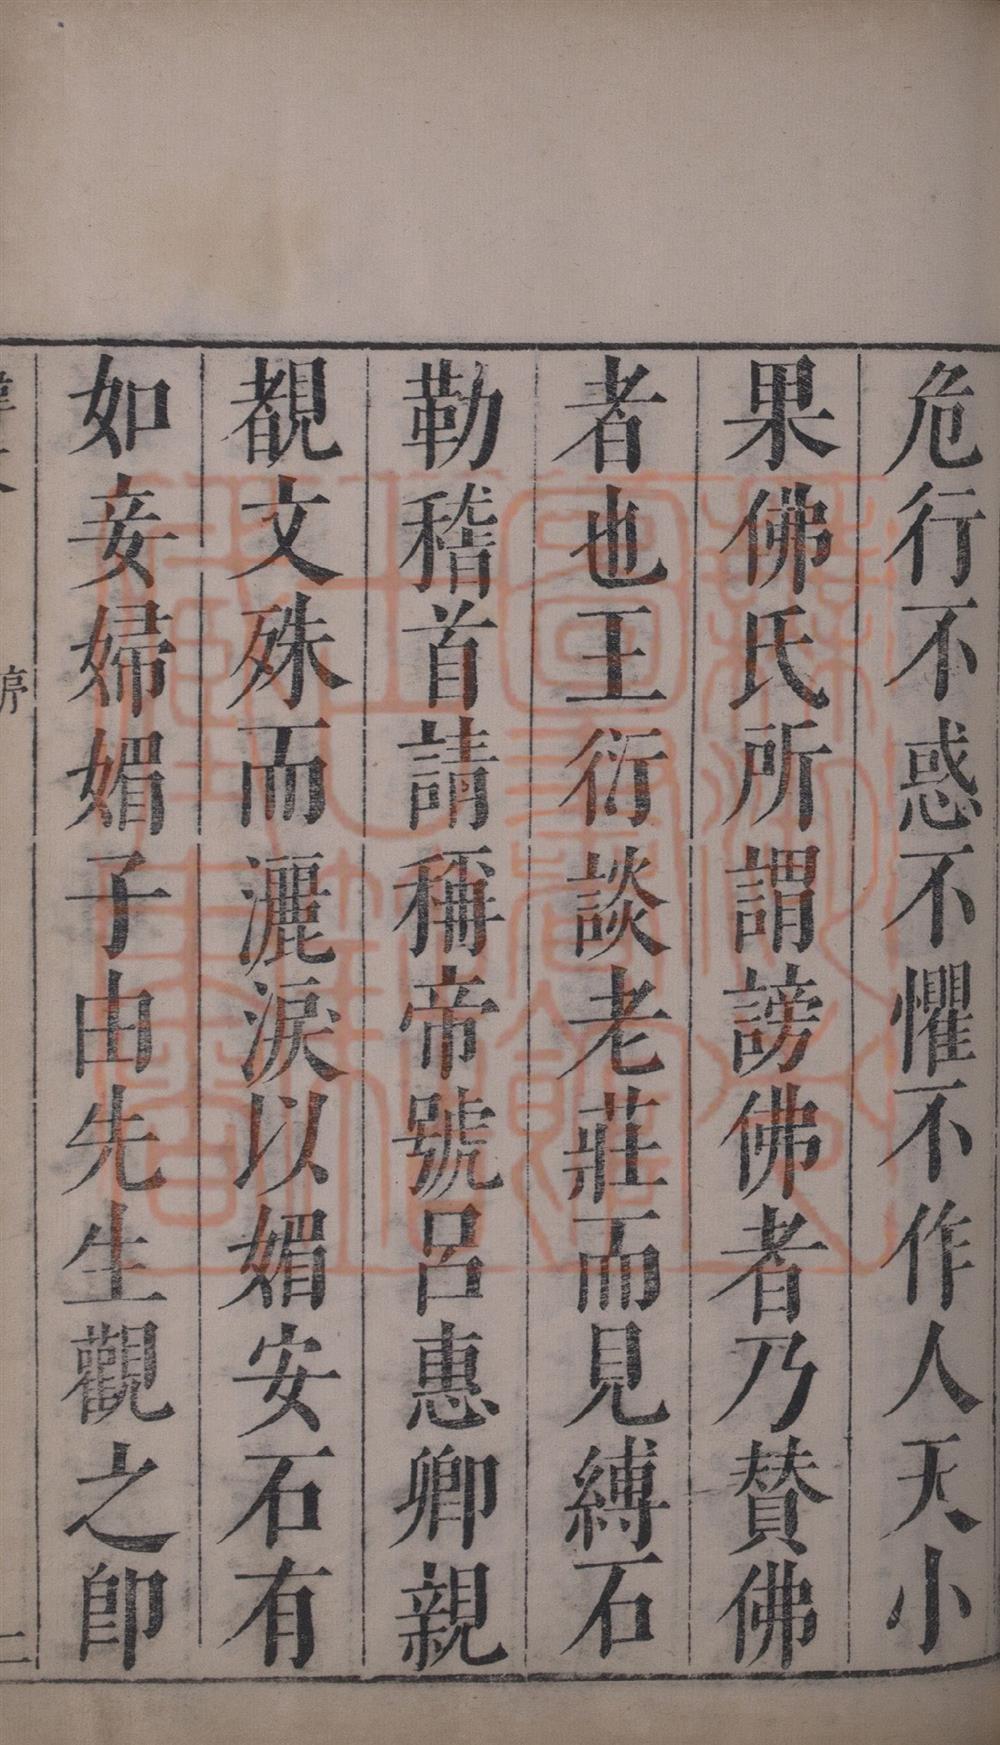 危行不惑不懼不作人天小
果佛氏所謂謗佛者乃賛佛
者也王衍談老莊而見縛石
勒稽首請稱帝號呂惠卿親
覩文殊而灑淚以媚安石有
如妾婦媚子由先生觀之卽
序